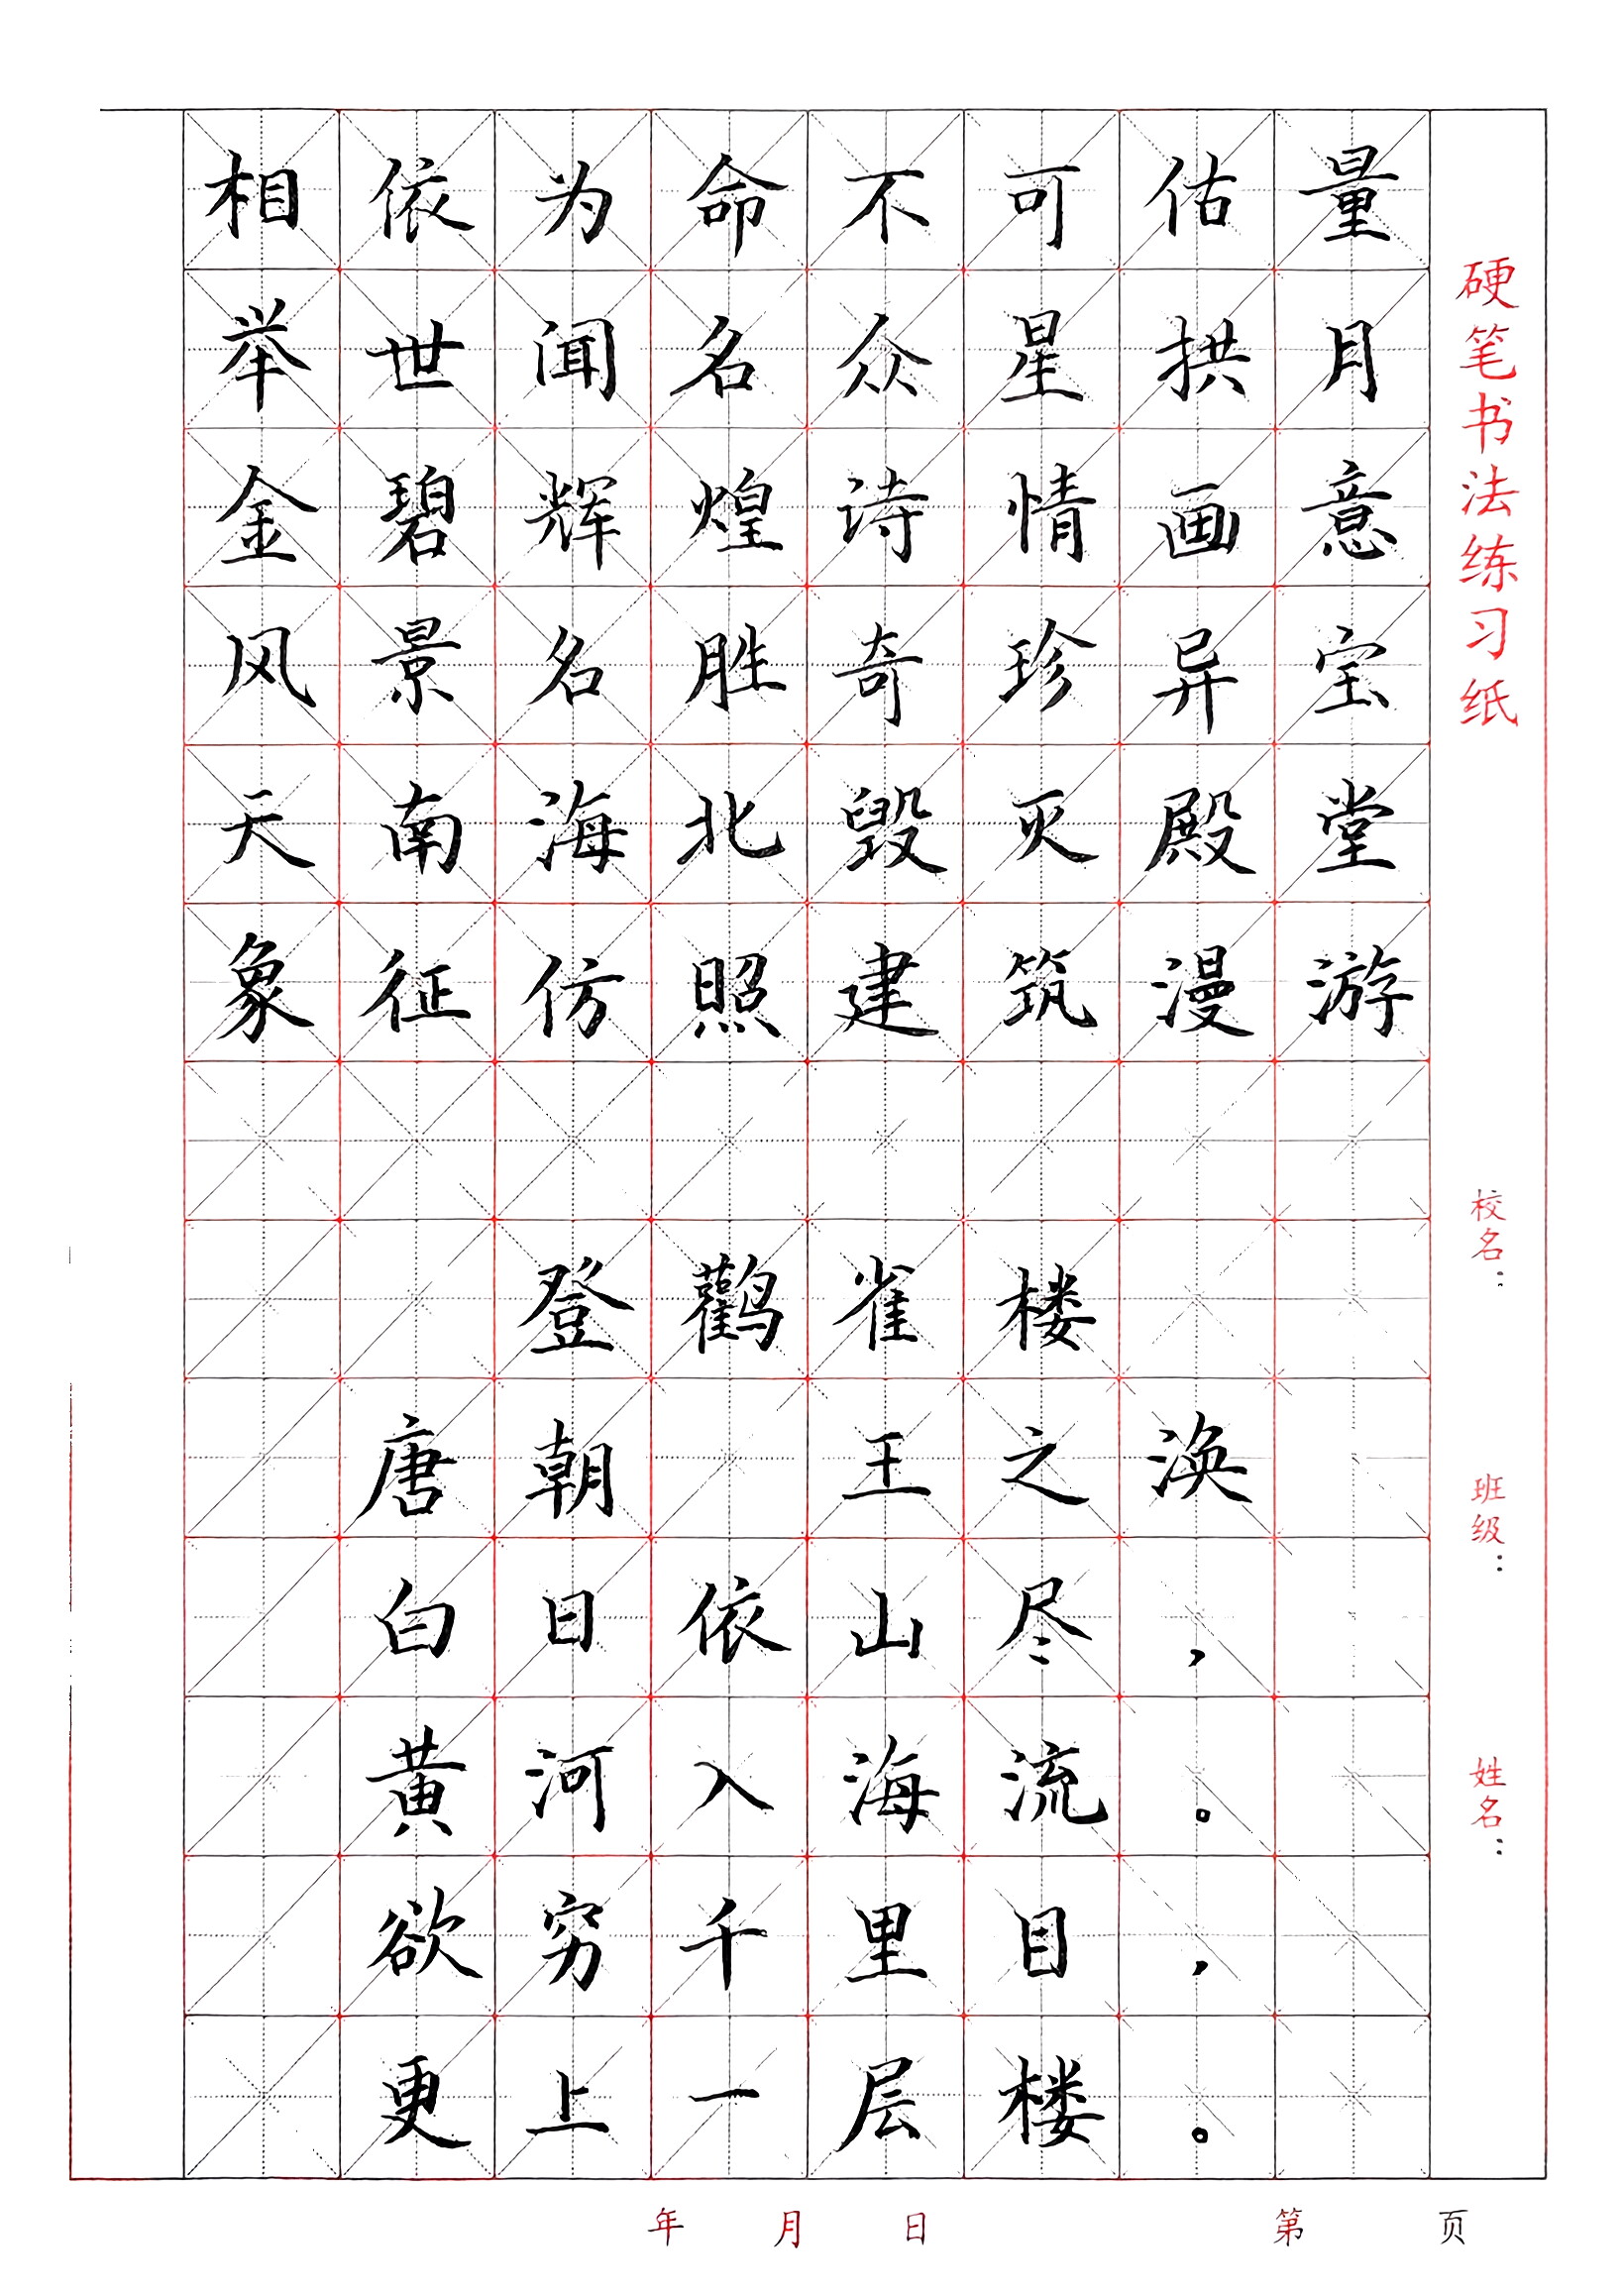 相依为命不可估量
举世闻名众星拱月
金碧辉煌诗情画意
风景名胜奇珍异宝
天南海北毁灭殿堂
象征仿照建筑漫游
登鹳雀楼
唐朝 王之涣
白日依山尽，
黄河入海流。
欲穷千里目，
更上一层楼。
硬笔书法练习纸
校名：
班级：
姓名：
年 月 日 第 页